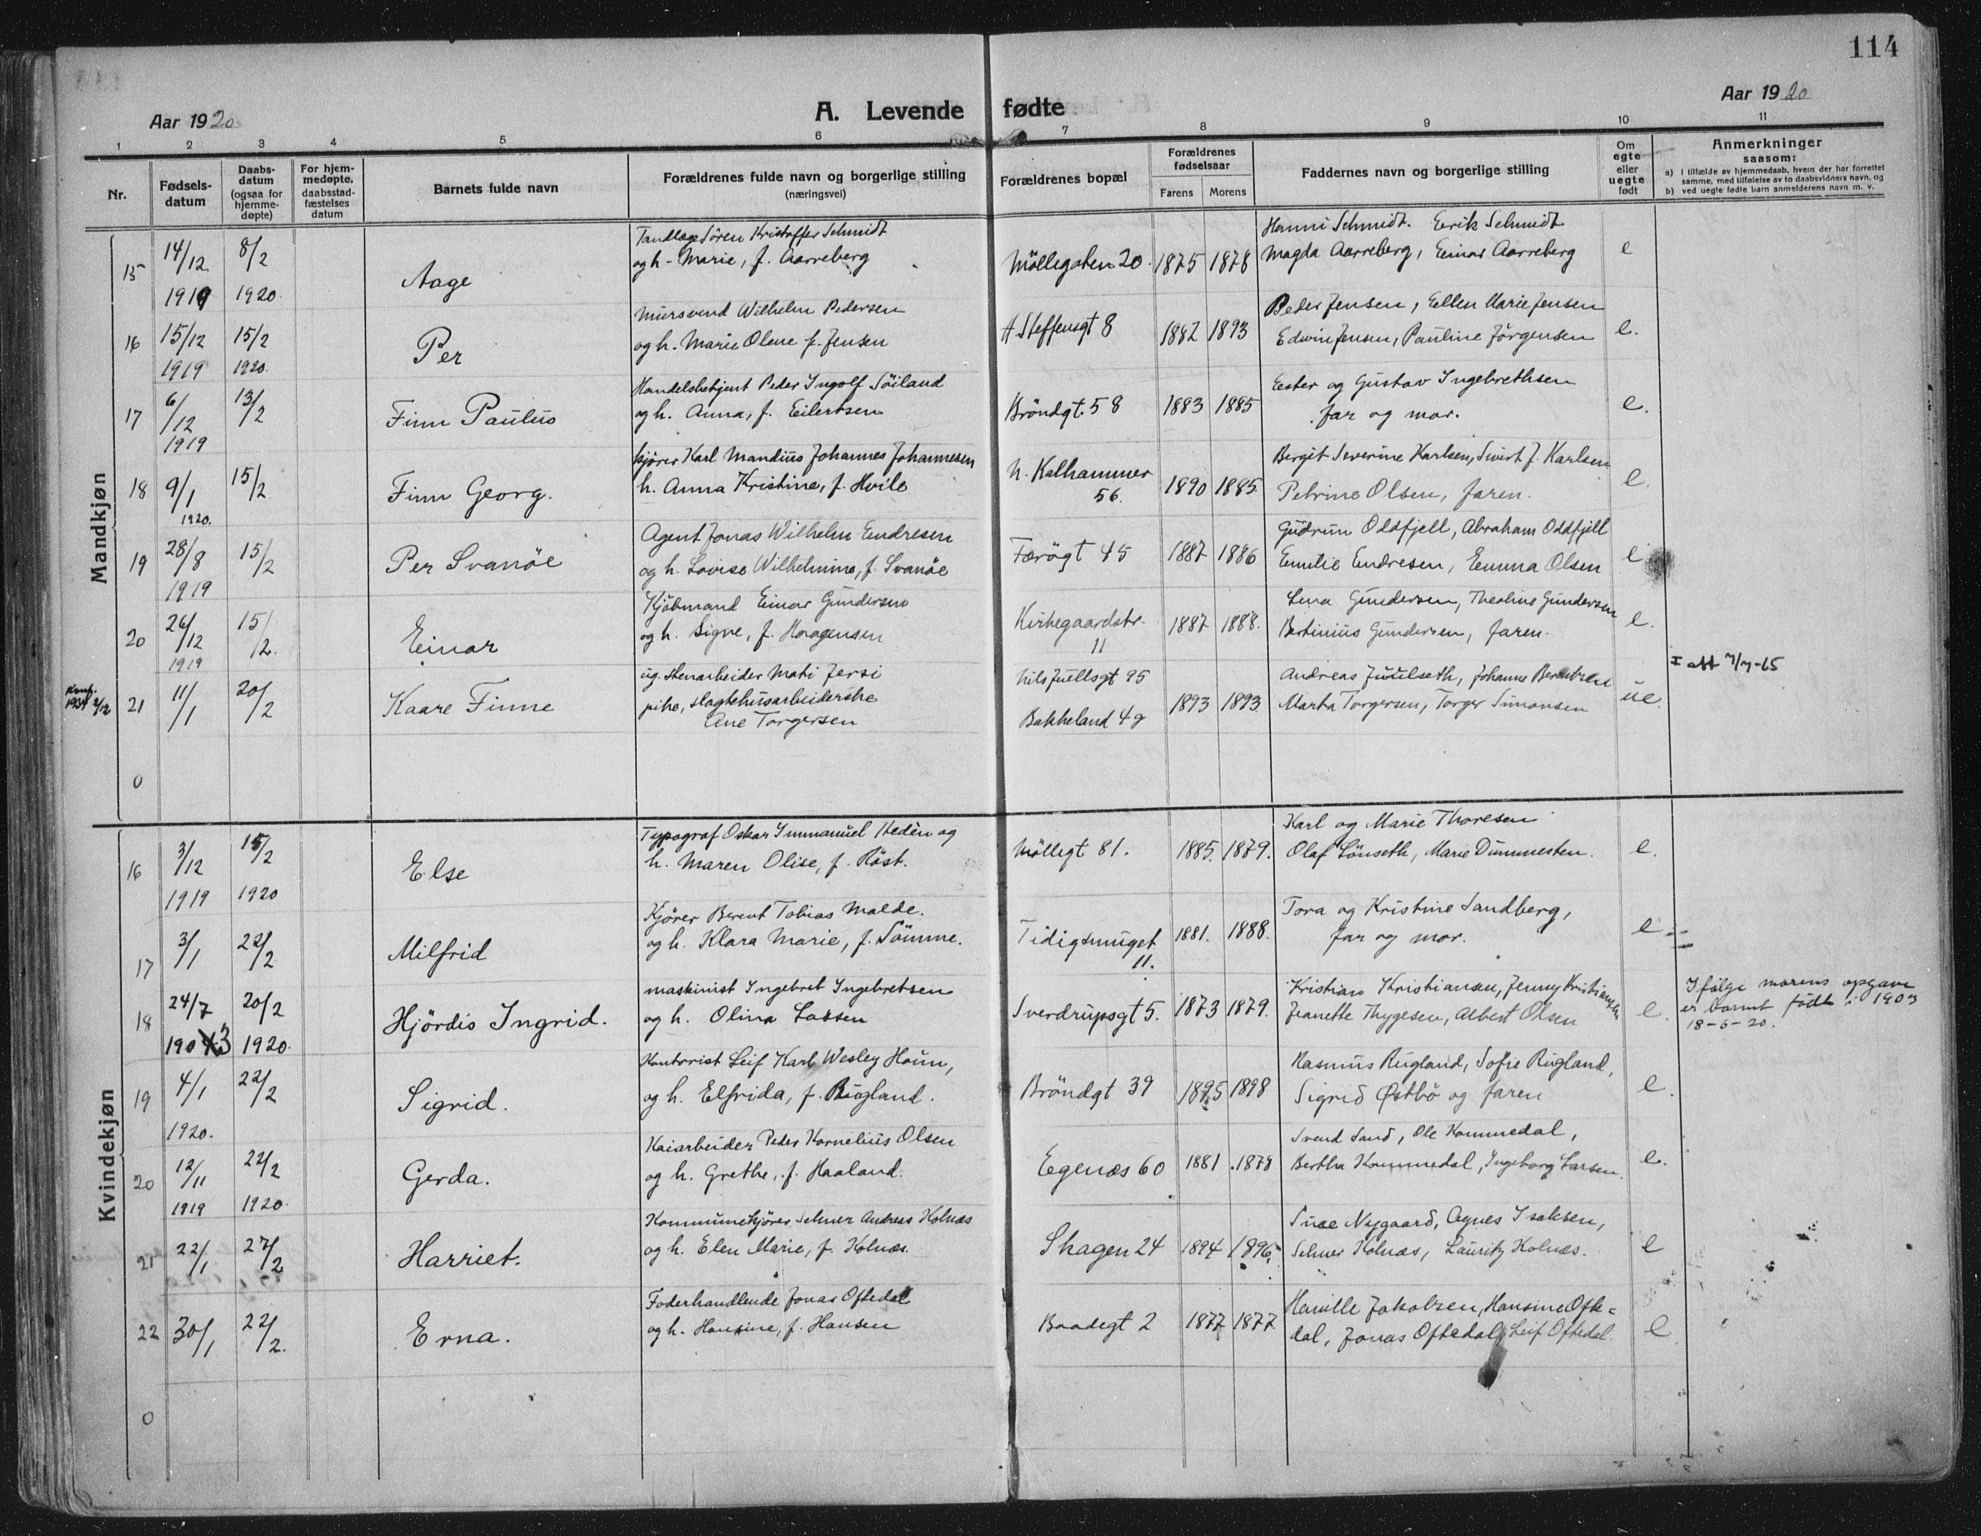 114
Aar 1920
A. Levende fødte
Aar 1920
1 2 3 4 5 6 7 8 9 10 11
Nr.
Fødsels-
datum
Daabs-
datum
(ogsaa for
hjemme-
døpte)
For hjem-
medøpte,
daabsstad-
fæstelses
datum
Barnets fulde navn
Forældrenes fulde navn og borgerlige stilling
(næringsvei)
Forældrenes bopæl
Forældrenes
fødselsaar
Farens Morens
Faddernes navn og borgerlige stilling
Om
egte
eller
uegte
født
Anmerkninger
saasom:
a) I tilfælde av hjemmedaab, hvem der har forrettet
samme, med tilføielse av to daabsvidners navn, og
b) ved uegte fødte barn anmelderens navn m. v.
Mandkjøn
Tandlæge Sören Kristoffer Schmidt Hanni Schmidt. Eerik Schmidt
15 14/12 8/2 Aage og h. Marie, f. Aarreberg Möllegaten 20. 1875 1878 Magda Aarreberg, Einar Aarreberg e
1919 1920.
Mursvend Wilhelm Pedersen Peder Jensen, Ellen Marie Jensen
16 15/12 15/2 Per og h. Marie Olene f. Jensen St Steffensgt 8 1882 1893 Edwin Jensen, Pauline Jörgensen e.
1919 1920.
Handelsbetjent Peder Ingolf Söiland Ester og Gustav Ingebrethsen
17 6/12 13/2 Finn Paulus og h. Anna, f. Eilertsen Bröndgt. 58 1883 1885 far og mor. e.
1919
kjörer Karl Mandius Johannes Johannesen Bergit Severine Karlsen, Sivert J. Karlsen
18 9/1 15/2 Finn Georg. h. Anna Kristine, f. Hvile N. Kalhammer 1890 1885. Petrine Olsen, faren. e.
1920. 56.
Agent Jonas Wilhelm Endresen Gudrun Oddfjell, Abraham Oddfjell
19 28/8 15/2 Per Svanöe og h. Lovise Wilhelmine, f. Svanöe Færögt 45 1887 1886 Emilie Endresen, Emma Olsen e
1919
Kjöbmand Einar Gundersen Lena Gundersen, Theoline Gundersen
20 26/12 15/2. Einar og h. Signe, f. Haagensen Kirkegaardstr. 1887 1888. Bertinius Gundersen, faren. e.
1919 11
I att 7/7-65
Konf. 1934 2/12
ug. Stenarbeider Mati Jersi Nils Juellsgt 95 Andreas Juulseth, Johanne
21 11/1 20/2 Kaare Finne pike, slagtehusarbeiderske 1893 1893. Marta Torgersen, Torger Simonsen ue.
Ane Torgersen Bakkeland 49
0
Kvindekjøn
Typograf Oskar Immanuel Hedèn og Karl og Marie Thoresen
16 3/12 15/2 Else h. Maren Olise, f. Röst. Mölligt 81. 1885. 1879. Olaf Lönseth, Marie Dummesten. e.
1919 1920
Kjörer Berent Tobias Malde. Tora og Kristine Sandberg,
17 3/1 22/2 Milfrid og h. Klara Marie, f. Sömme. Tidigsmuget 1881. 1888. far og mor. e
11.
maskinist Ingebret Ingebretsen Kristian Kristiansen, Jenny Kristiansen Ifölge morens opgave
18 24/7 20/2 Hjördis Ingrid. og h. Olina Lassen Sverdrupsgt 5. 1873 1879. Jeanette Thygesen, Albert Olsen e. er barnet födt i 1903
1903 1920. 18-6-20.
Kontorist Leif Karl Wesley Houn, Rasmus Rugland, Sofie Rugland,
19 4/1 22/2 Sigrid. og h. Elfrida, f. Rugland. Bröndgt 39 1895 1898 Sigrid Østbö og faren e.
1920.
Kaiarbeider Peder Kornelius Olsen Svend Sand, Ole Kommedal,
20 12/11 22/2 Gerda. og h. Grethe, f. Haaland. Egenæs 60 1881 1878 Bertha Kommedal, Ingeborg Larsen. e.
1919 1920.
Kommunekjörer Selmer Andreas Holnæs Nygaard, Agnes Isaksen,
21 22/1 27/2 Harriet. og h. Elen Marie, f. Holnæs. Skagen 24 1894 1896 Selmer Holnæs, Lauritz Holnæs. e
Foderhandlende Jonas Oftedal Hamille Jakobsen, Hansine Ofte=
22 30/1 22/2. Erna. og h. Hansine, f. Hansen Baadegt 2 1877 1877 dal, Jonas Oftedal, Leif Oftedal. e
0